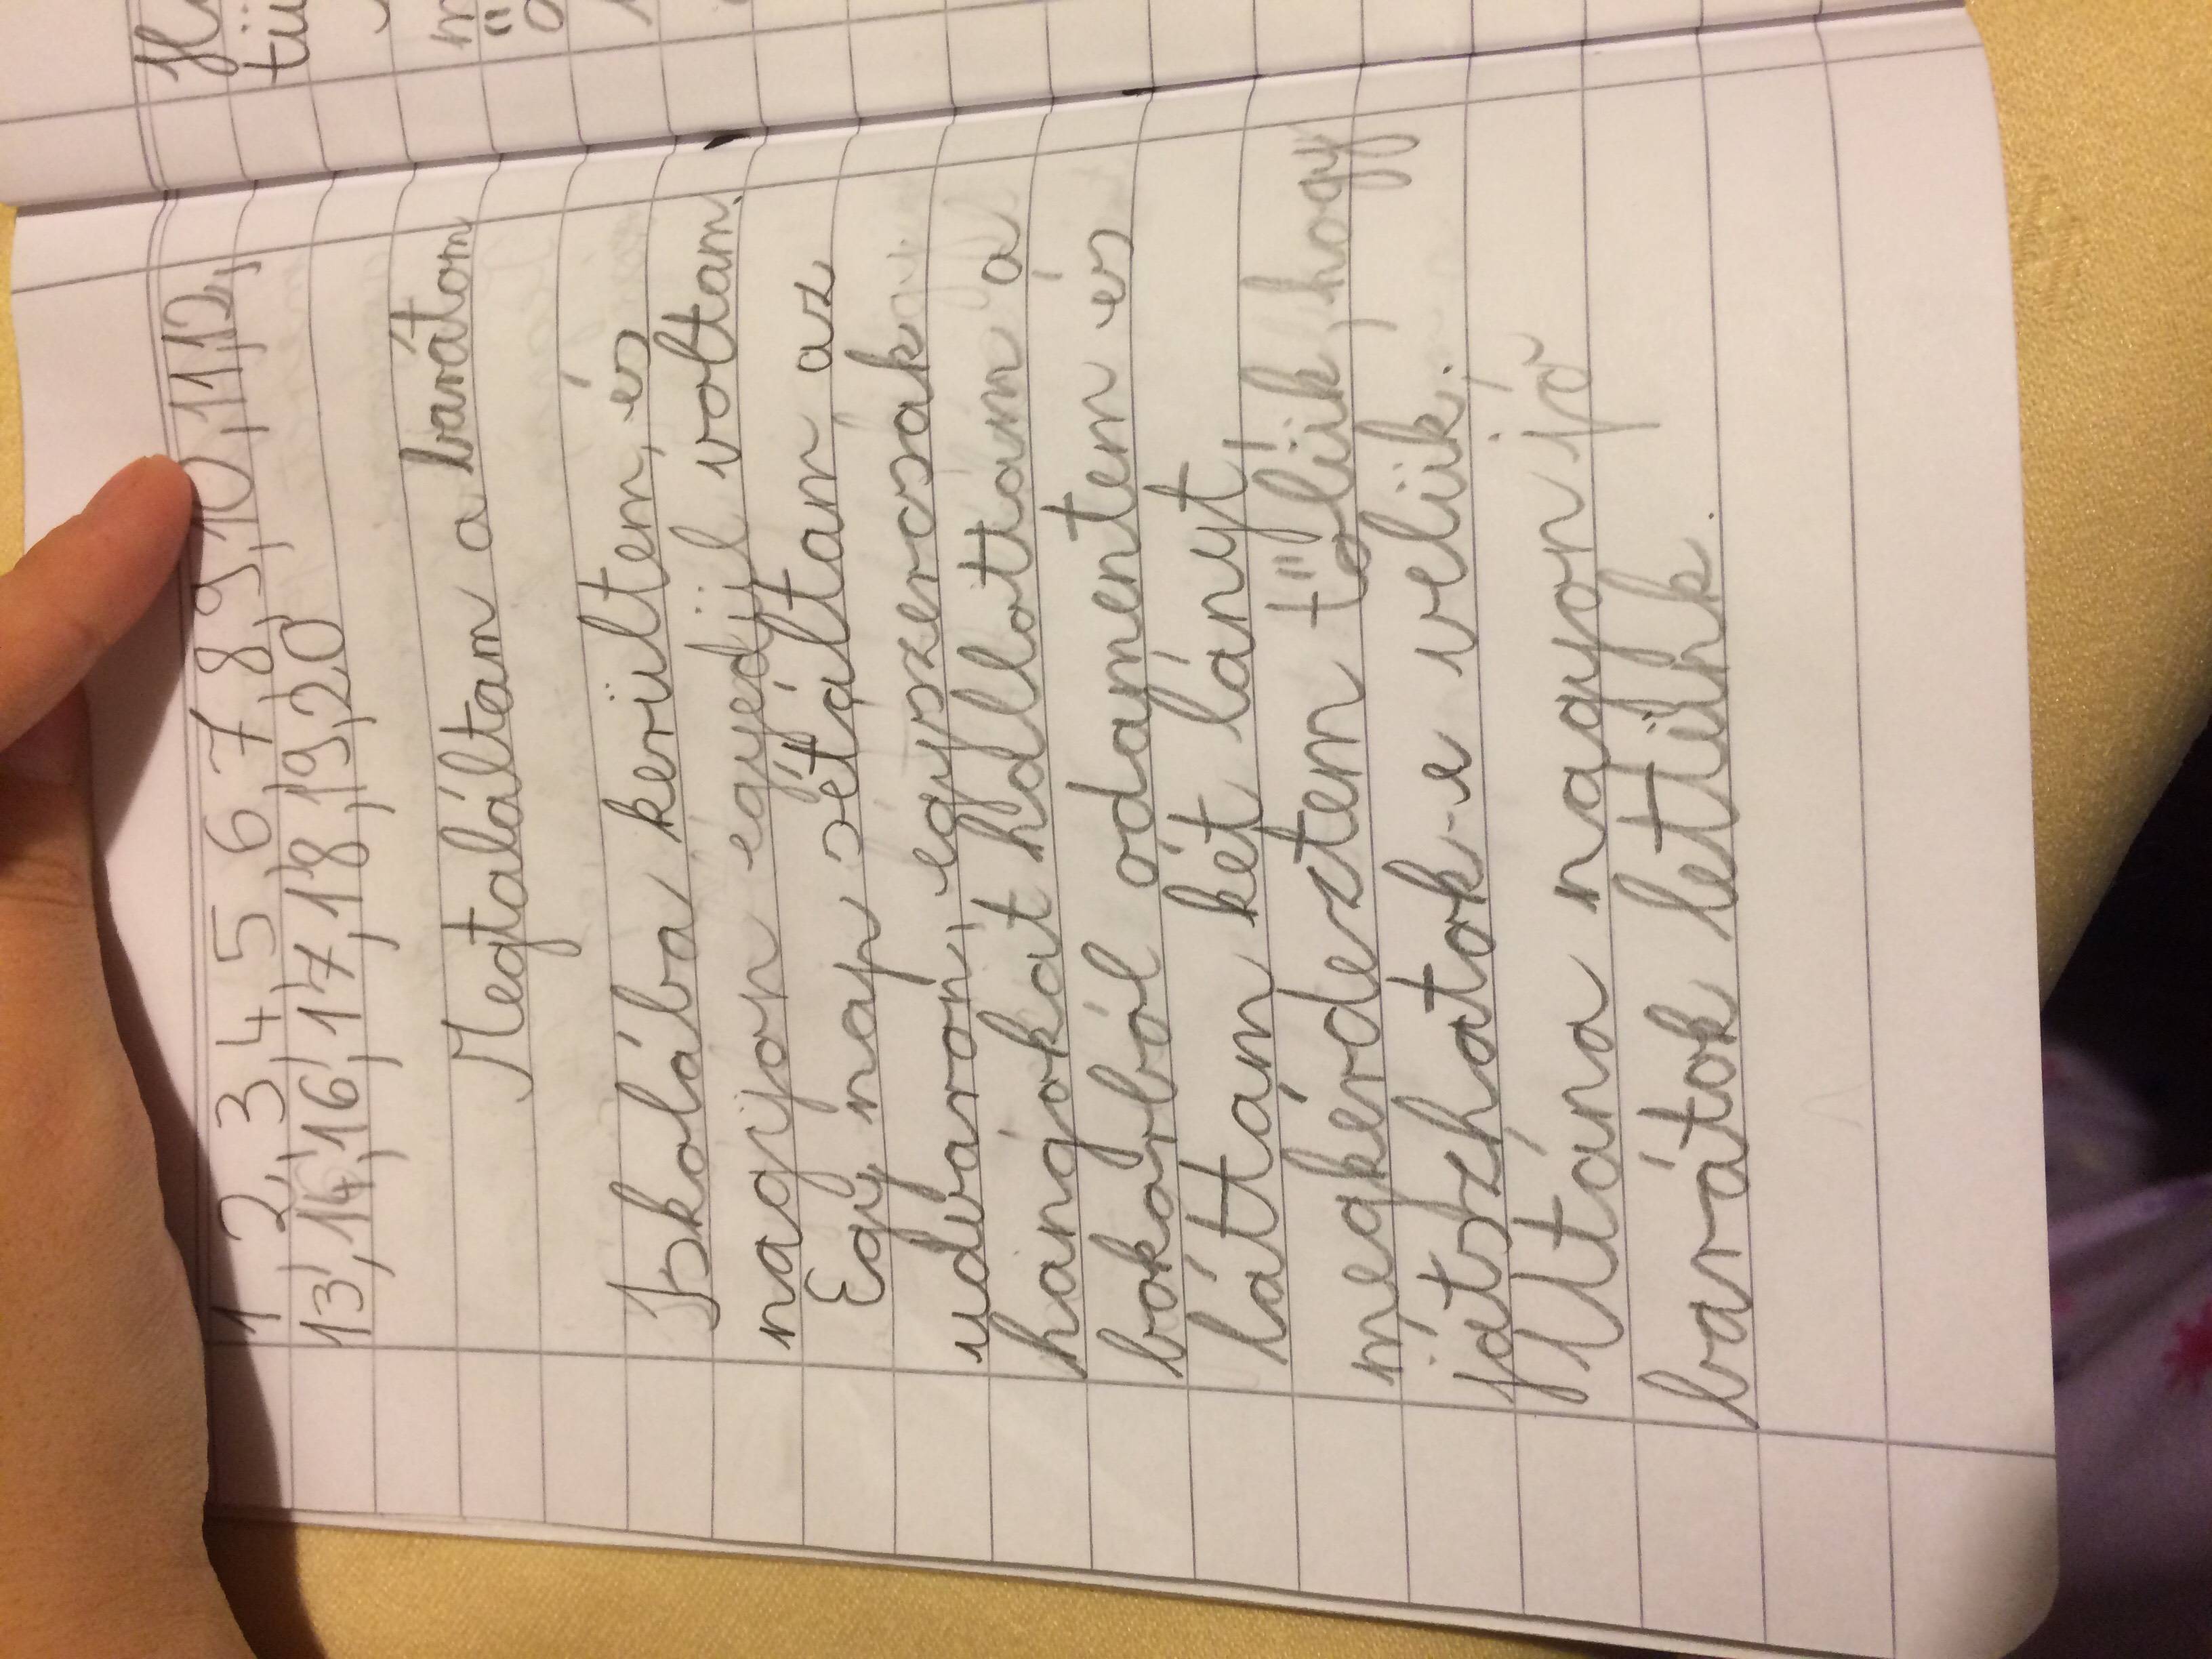 1 2, 3, 4, 5 6, 7, 8, 9, 10, 11, 12,
13, 14, 16, 17, 18, 19, 20
Megtaláltam a barátom
Iskolába kerültem, és
nagyjon egyedjül voltam.
Egy nap sétáltam az
udvaron, egyszercsak
hangokat hallottam a
bokorból odamentem és
láttam két lányt,
megkérdeztem tőlük, hogy
játszhatok-e velük.
Utána nagyon jó
barátok lettünk.